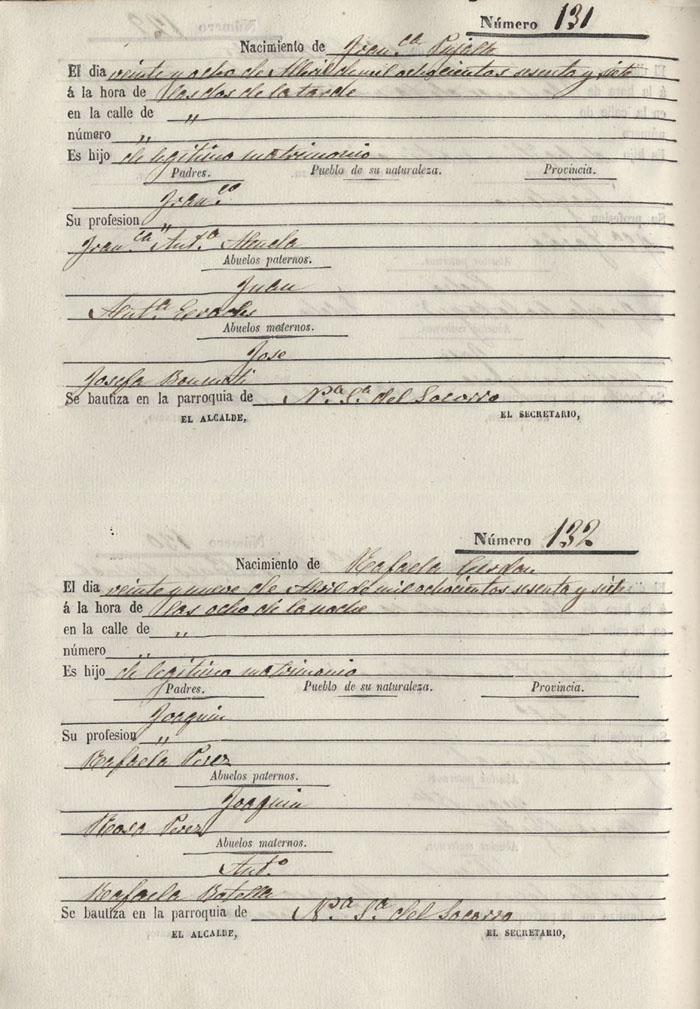 Número 131
Nacimiento de Fran.ca Pujalte
El dia veinte y ocho de Abril de mil ochocientos sesenta y siete
á la hora de las dos de la tarde
en la calle de "
número "
Es hijo de legítimo matrimonio
Padres. Pueblo de su naturaleza. Provincia.
Fran.co
Su profesion "
Fran.ca Ant.a
Abuelos paternos.
Juan
Ant.a
Abuelos maternos.
Jose
Josefa Bonmati
Se bautiza en la parroquia de N.ra S.ra del Socorro
EL ALCALDE, EL SECRETARIO,
Número 132
Nacimiento de Rafaela
El dia veinte y nueve de Abril de mil ochocientos sesenta y siete
á la hora de las ocho de la noche
en la calle de "
número "
Es hijo de legítimo matrimonio
Padres. Pueblo de su naturaleza. Provincia.
Joaquin
Su profesion "
Rafaela Perez
Abuelos paternos.
Joaquin
Rosa Perez
Abuelos maternos.
Ant.o
Rafaela Botella
Se bautiza en la parroquia de N.ra S.ra del Socorro
EL ALCALDE, EL SECRETARIO,